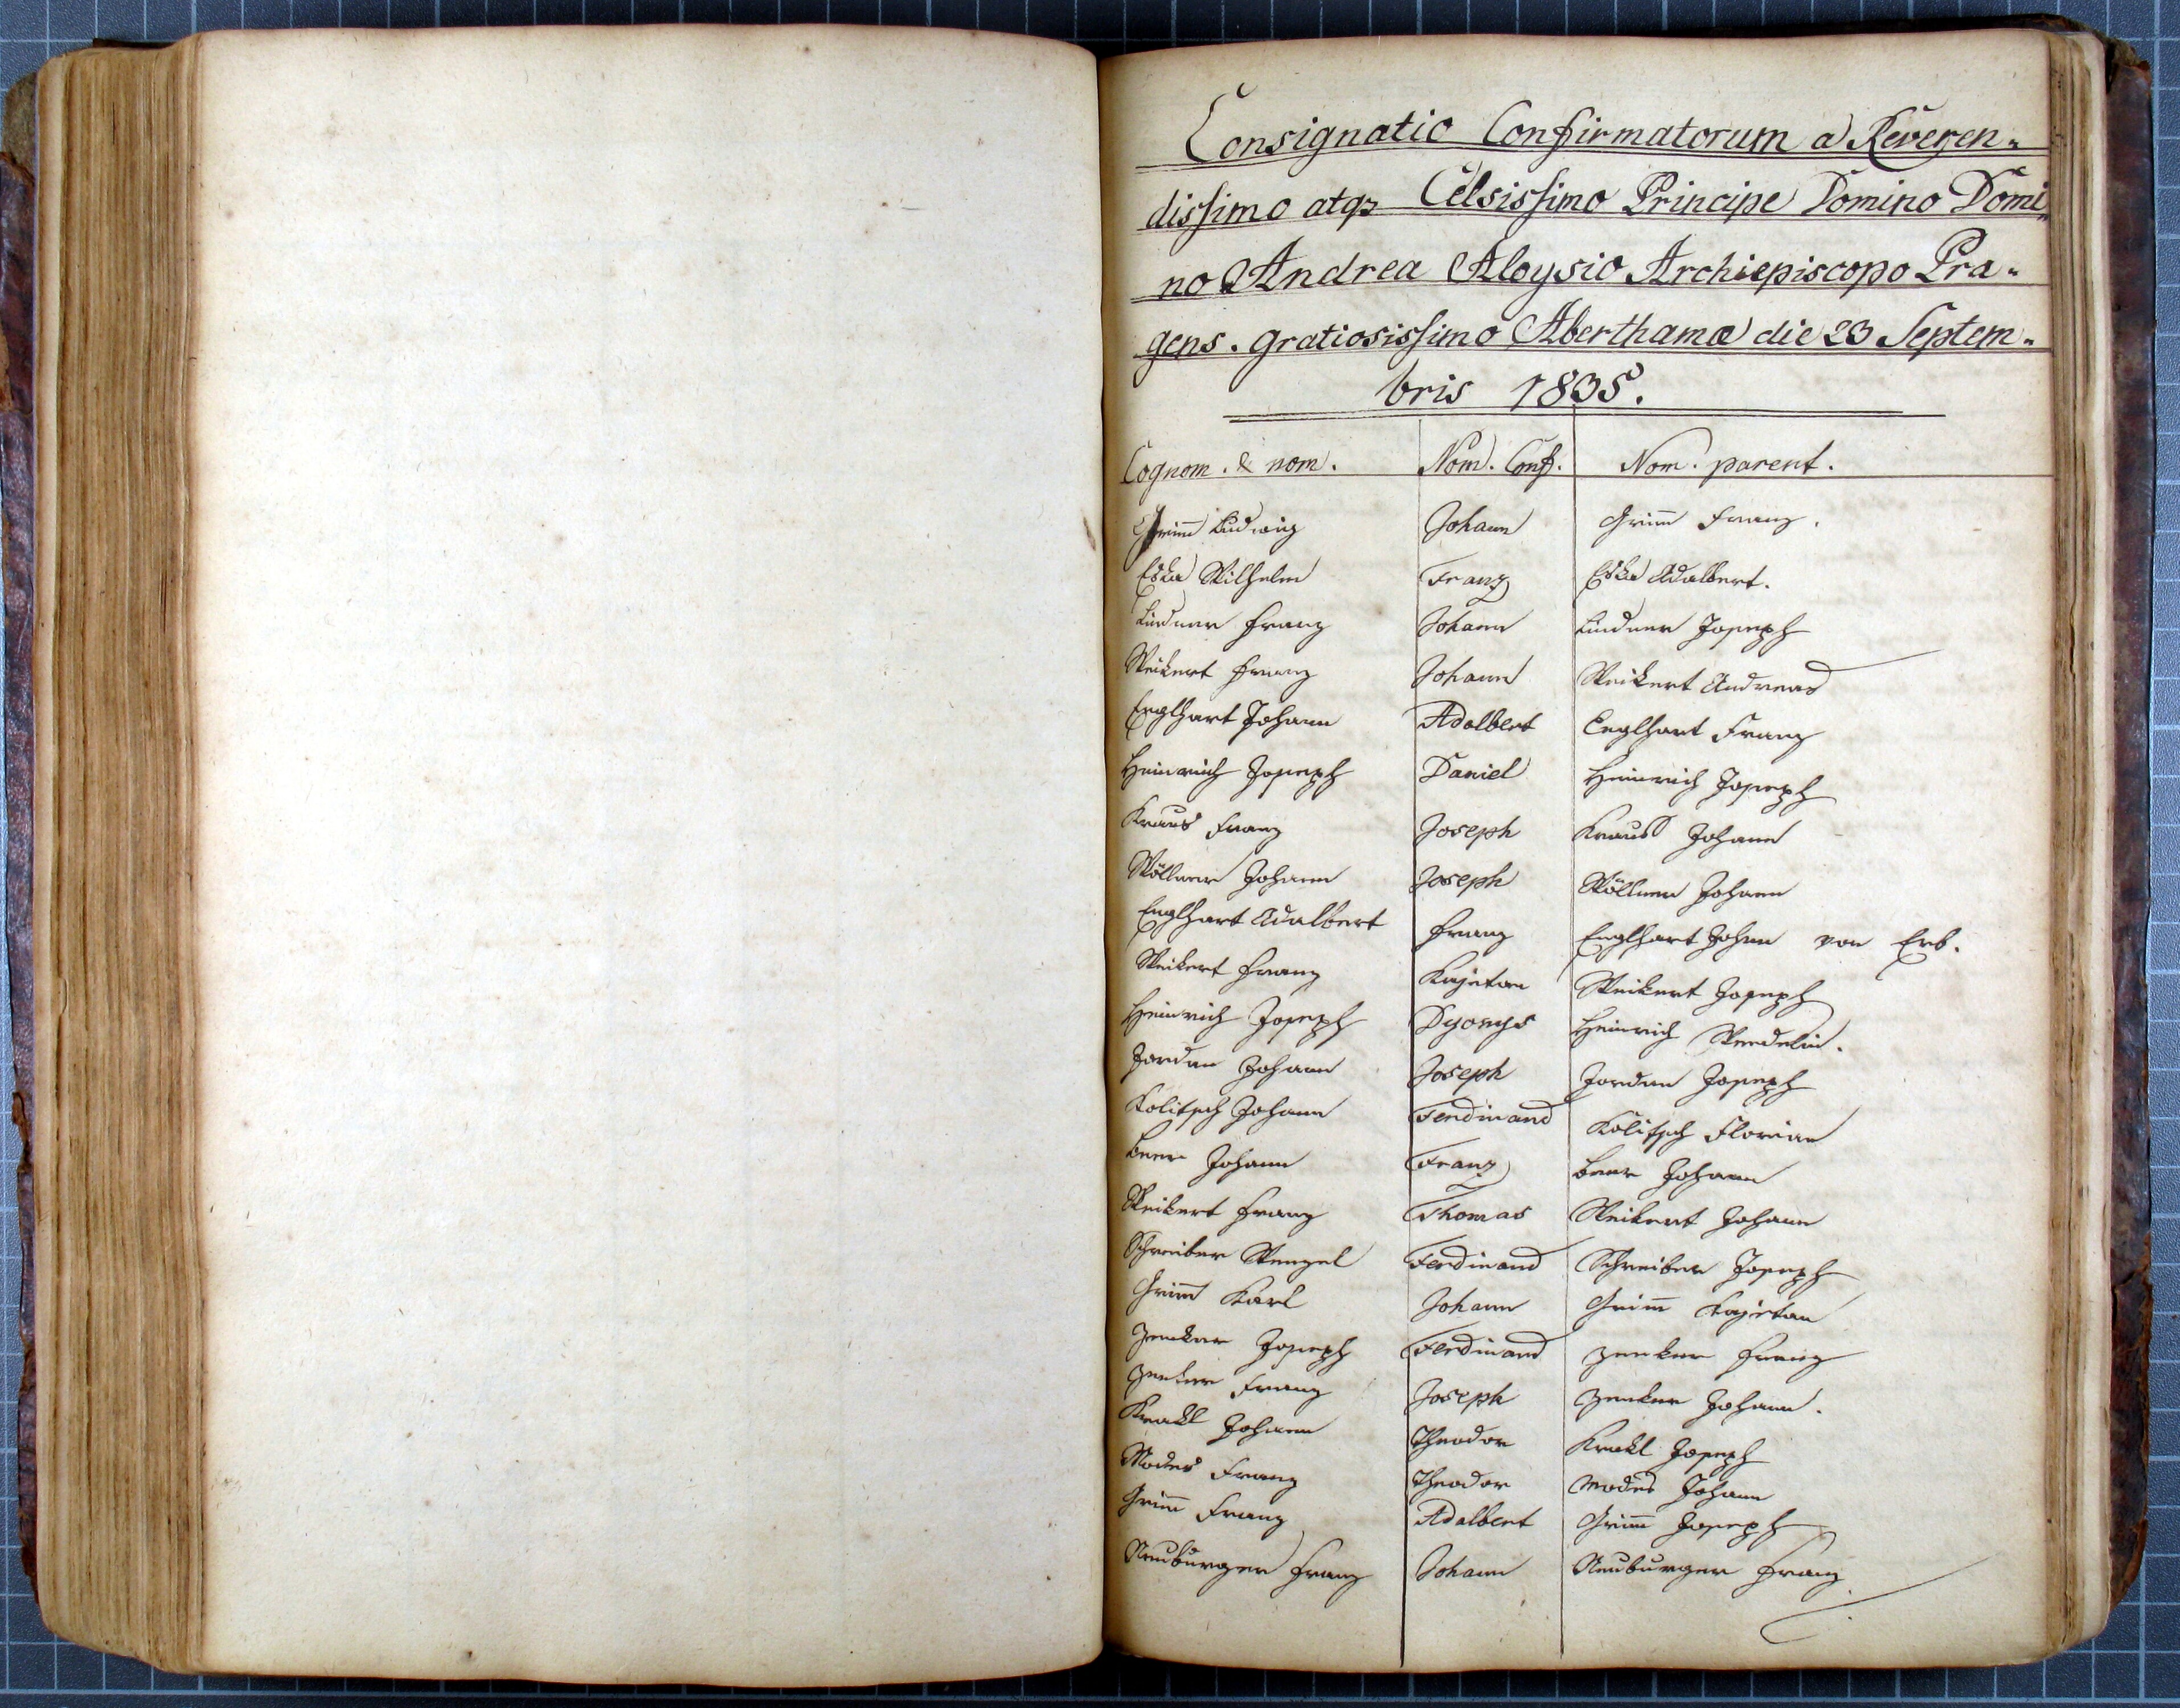 Consignatio Confirmatorum a Reveren-
dissimo atqz Celsissimo Principe Domino Domi-
no Andrea Aloysio Archiepiscopo Pra-
gens. gratiosissimo Aberthamæ die 23 Septem-
bris 1835.
Cognom. & nom. Nom. Conf. Nom. parent.
Grim̅ Ludwig Johann Grim̅ Franz.
Eska Wilhelm Franz Eska Adalbert.
Lindner Franz Johann Lindner Joseph
Weikert Franz Johann Weikert Andreas
Englhart Johann Adalbert Englhart Franz
Heinrich Joseph Daniel Heinrich Joseph
Kraus Franz Joseph Kraus Johann
Wöllner Johann Joseph Wöllner Johann
Englhart Adalbert Franz Englhart Johan von Erb.
Weikert Franz Kajetan Weikert Joseph
Heinrich Joseph Dyonys Heinrich Wendelin.
Jordan Johann Joseph Jordan Joseph
Kolitsch Johann Ferdinand Kolitsch Florian
Beer Johann Franz Beer Johann
Weikert Franz Thomas Weikert Johann
Schreiber Wenzel Ferdinand Schreiber Joseph
Grim̅ Karl Johann Grim̅ Kajetan
Zenker Joseph Ferdinand Zenker Franz
Zenker Franz Joseph Zenker Johann.
Krakl Johann Theodor Krakl Joseph
Modes Franz Theodor Modes Johann
Grim̅ Franz Adalbert Grim̅ Joseph
Neuburger Franz Johann Neuburger Franz